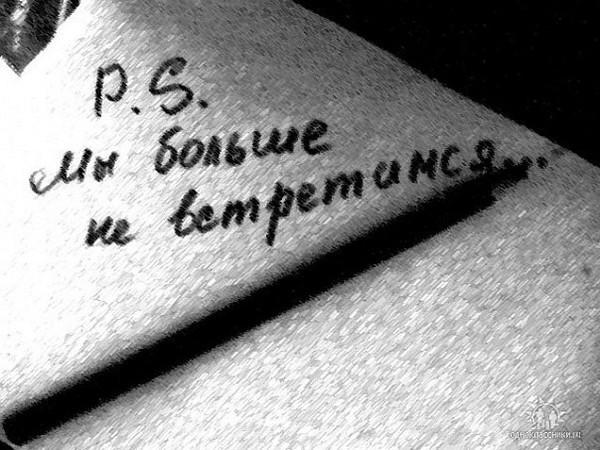 P.S.
мы больше
не встретимся...
одноклассники.ru